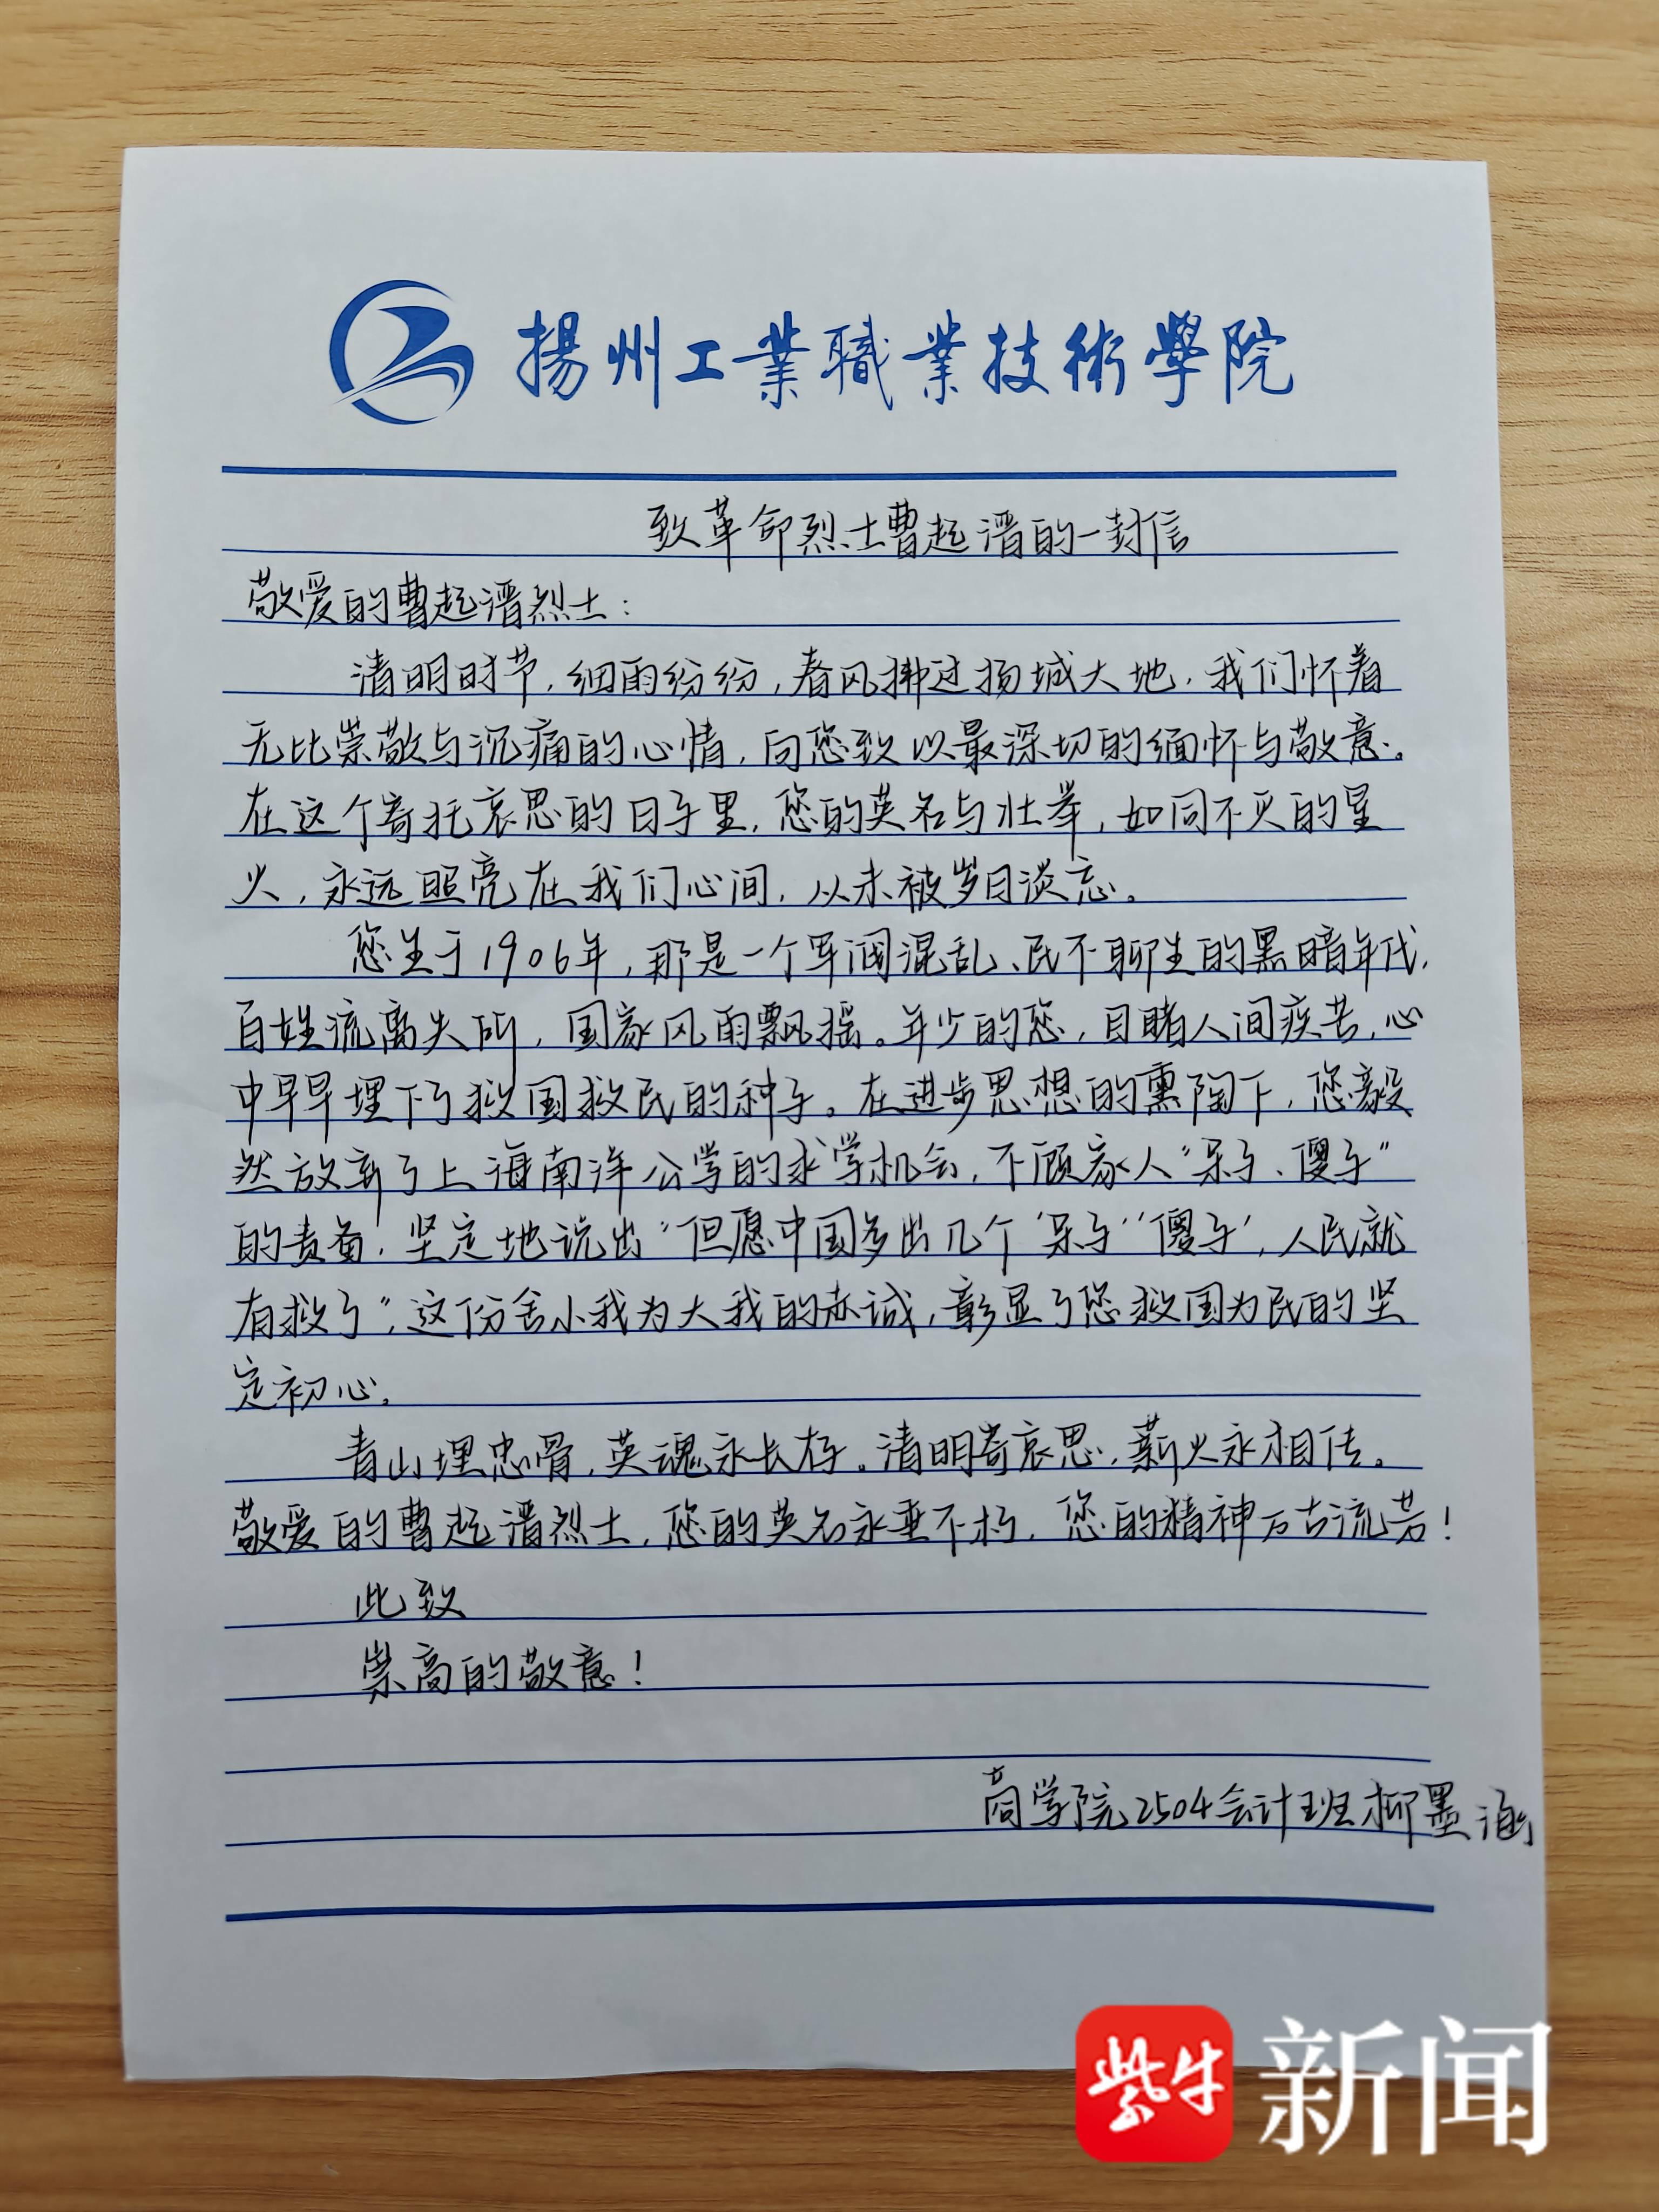 揚州工業職業技術學院
致革命烈士曹起溍的一封信
敬爱的曹起溍烈士：
清明时节，细雨纷纷，春风拂过扬城大地，我们怀着
无比崇敬与沉痛的心情，向您致以最深切的缅怀与敬意。
在这个寄托哀思的日子里，您的英名与壮举，如同不灭的星
火，永远照亮在我们心间，从未被岁月淡忘。
您生于1906年，那是一个军阀混乱、民不聊生的黑暗年代，
百姓流离失所，国家风雨飘摇。年少的您，目睹人间疾苦，心
中早早埋下了救国救民的种子。在进步思想的熏陶下，您毅
然放弃了上海南洋公学的求学机会，不顾家人“呆子、傻子”
的责备，坚定地说出“但愿中国多出几个‘呆子’‘傻子’，人民就
有救了”，这份舍小我为大我的赤诚，彰显了您救国为民的坚
定初心。
青山埋忠骨，英魂永长存。清明寄哀思，薪火永相传。
敬爱的曹起溍烈士，您的英名永垂不朽，您的精神万古流芳！
此致
崇高的敬意！
商学院2504会计班柳墨涵
紫牛新闻